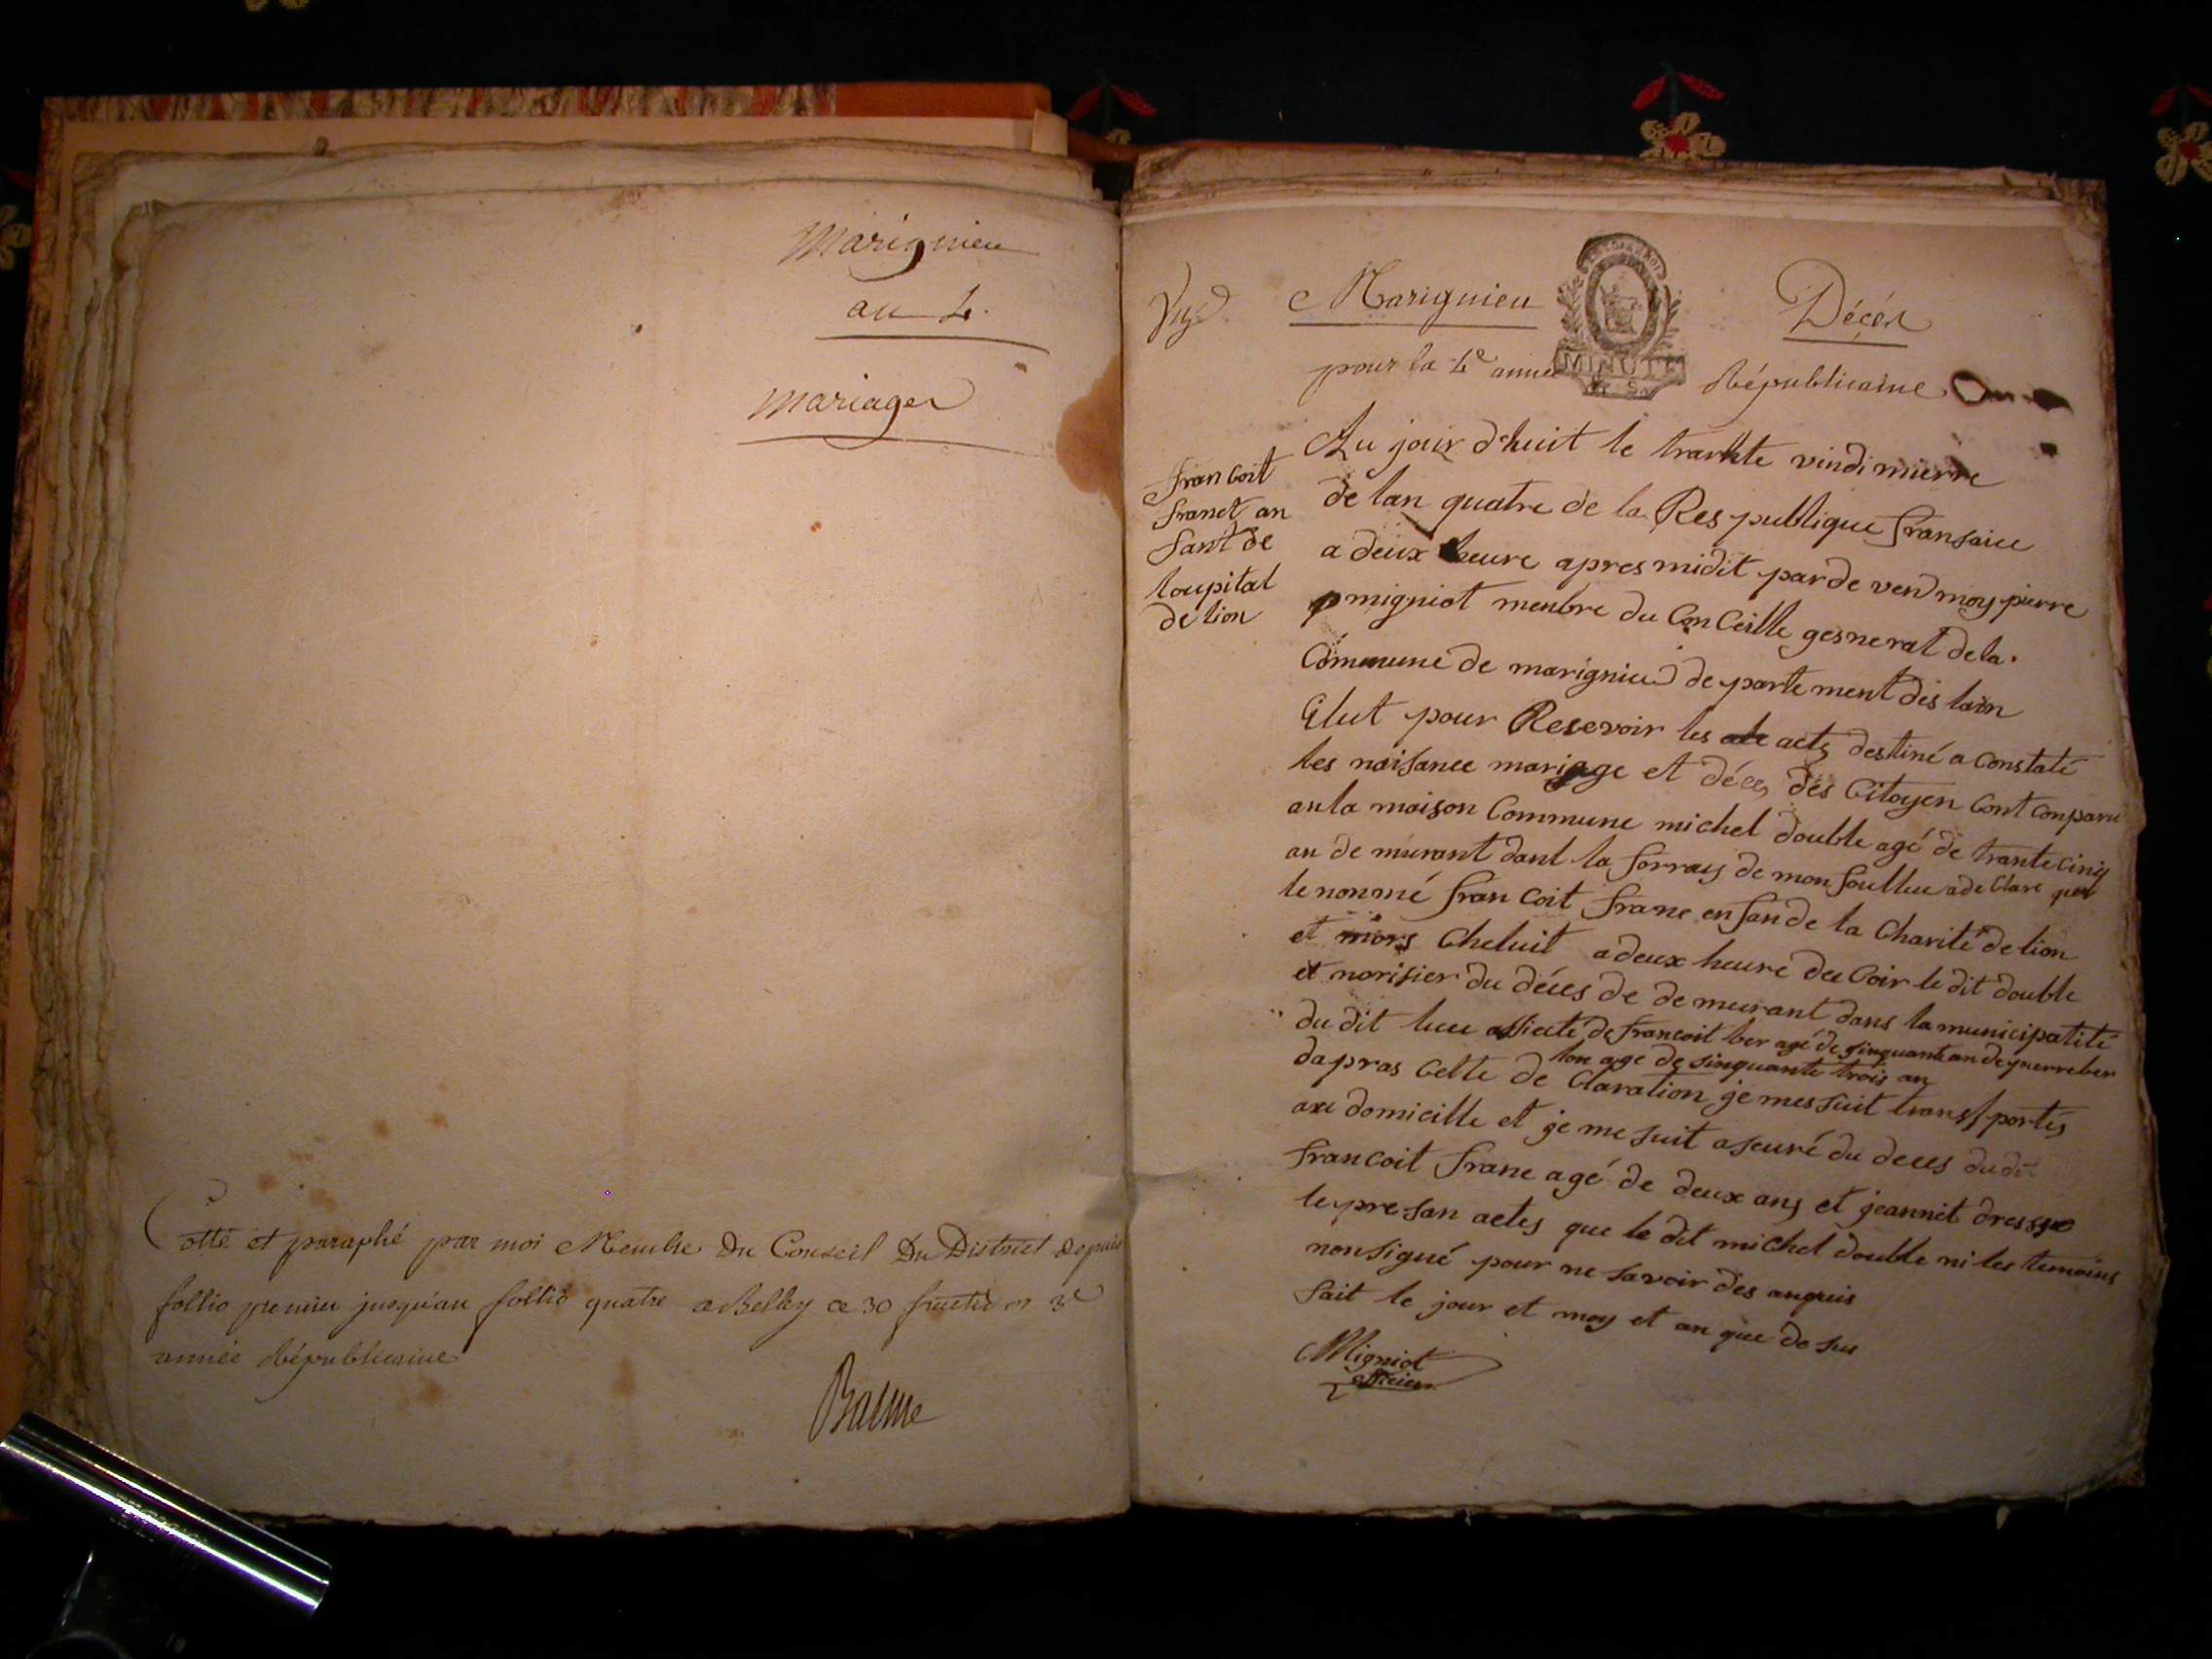 Marignieu
an 4.
mariages
Cotté et paraphé par moi Membre Du Conseil Du District depuis
follio premier jusqu'au follio quatre a Belley ce 30 fructidor 3e
année Républicaine
Balme
Marignieu
Décés
MINUTE
pour la 4e année Républicaine
francoit
franct an
fant de
loupital
de lion
Au jour d'huit le trankte vindimierre
de lan quatre de la Respublique fransaice
a deux heure apres midit par de vend moy pierre
migniot menbre du Conceille gesnerat de la
Commune de marignieu de partement des lain
Elut pour Resevoir les acts destiné a constaté
les naisance mariage et déces des Citoyen Cont Conparu
an la maison Commune michel double agé de trante cinq
an de murant dant la forrays de mon foulleu a de Clare que
le nonmé francoit franc enfan de la Charité de lion
et mors Cheluit a deux heure du Coir le dit double
et norisier du déces de demeurant dans la municipatité
du dit lieu assicté de francoit ber agé de sinquante an de pierre ber
lon age de sinquante trois an
dapras Celte de Claration je mes suit transsportés
au domicille et je me suit aseuré du deces du dit
francoit franc agé de deux ans et jeannit dresse
le presan actes que le dit michel double ni les temoins
non signé pour ne savoir des anquis
fait le jour et moy et an que de sus
Migniot
officier